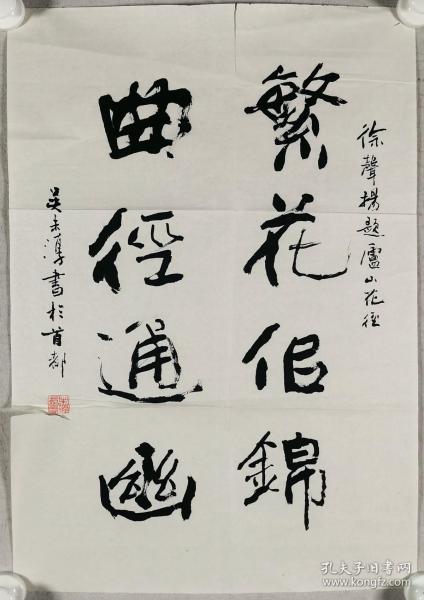 徐聲揚題廬山花徑
繁花佀錦
曲徑通幽
吴未淳書於首都
孔夫子旧书网
www.kongfz.com